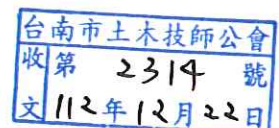 台南市土木技師公會
收文 第 2314 號
112年12月22日